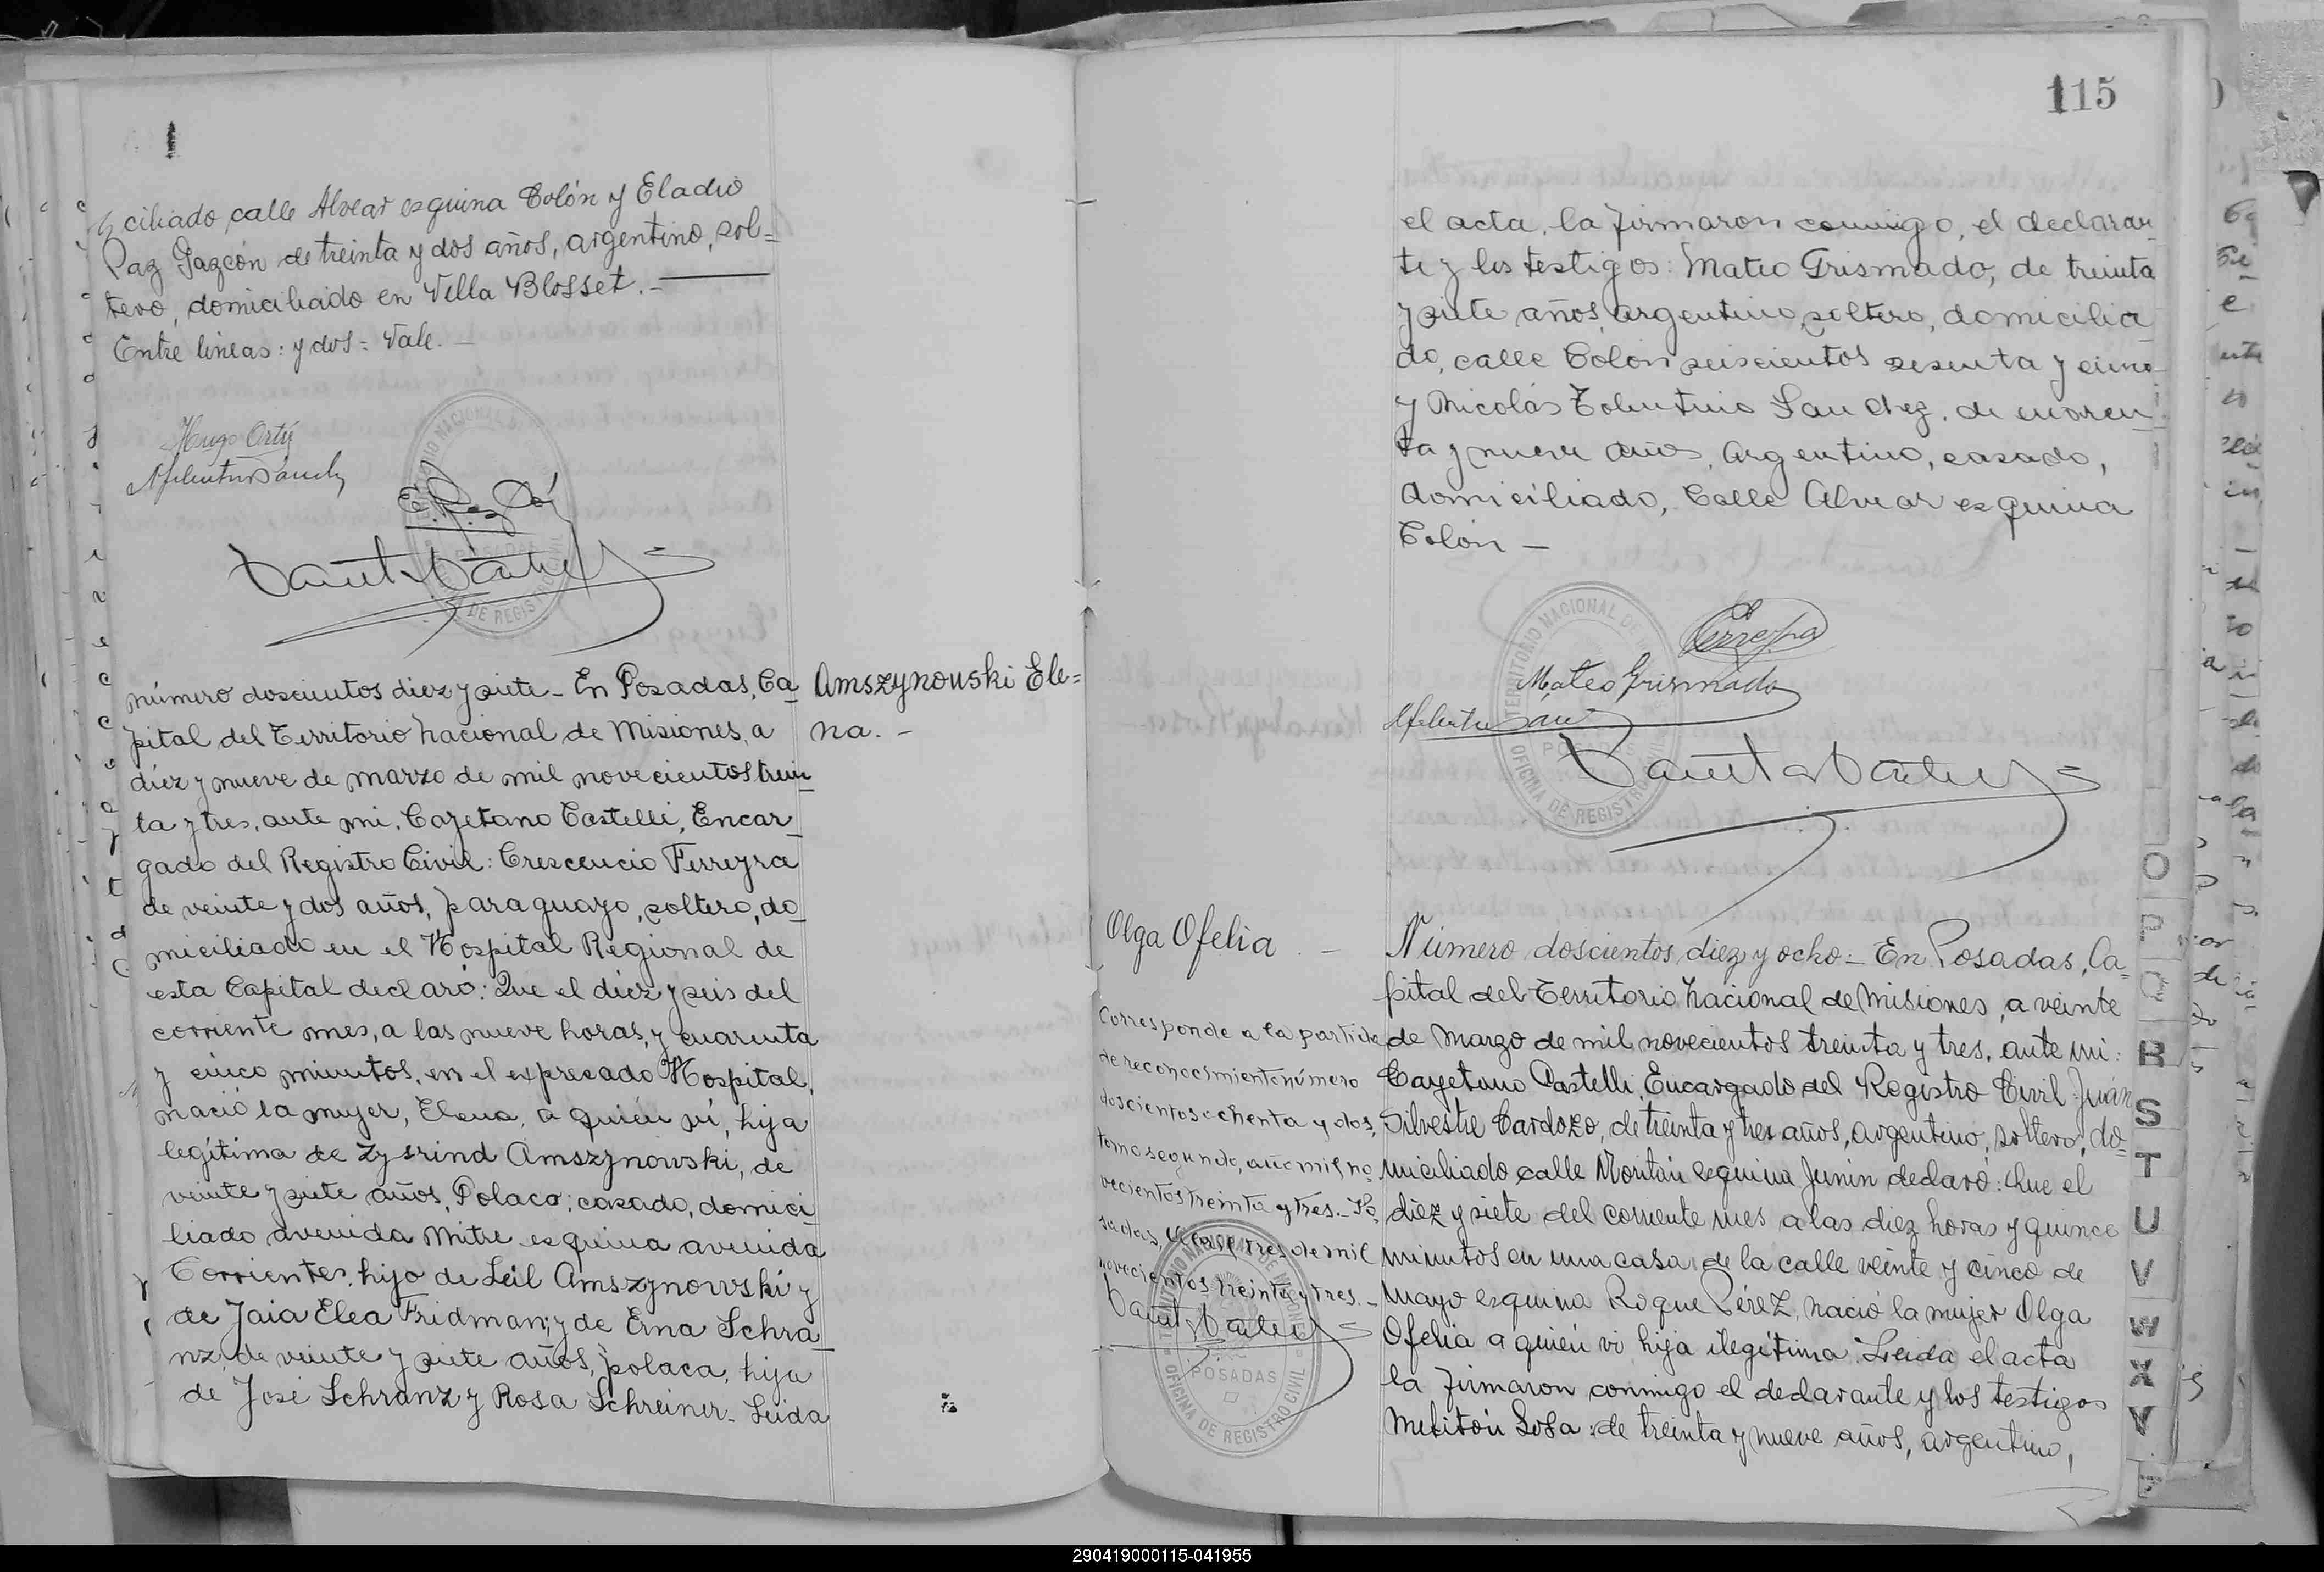 ciliado calle Alvear esquina Colón y Eladio
Paz Gazcón de treinta y dos años, argentino, sol=
tero, domiciliado en Villa Blosset.-
Entre lineas: y dos = Vale.-
Hugo Ortiz
número doscientos diez y siete - En Posadas, Ca_
pital del Territorio nacional de Misiones, a
diez y nueve de marzo de mil novecientos trein_
ta y tres, ante mi, Cayetano Castelli, Encar_
gado del Registro Civil: Crescencio Ferreyra
de veinte y dos años, paraguayo, soltero, do_
miciliado en el Hospital Regional de
esta Capital declaró: Que el diez y seis del
corriente mes, a las nueve horas, y cuarenta
y cinco minutos, en el expresado Hospital,
nació la mujer, Elena, a quién vi, hija
legítima de Zysrind Amszynowski, de
veinte y siete años, Polaco; casado, domici_
liado avenida Mitre esquina avenida
Corrientes, hijo de Leil Amszynowski y
de Jaia Elea Fridman; y de Erna Schra_
nz, de veinte y siete años, polaca, hija
de José Schranz y Rosa Schreiner - Leida
Amszynowski Ele=
na. -
115
el acta, la firmaron conmigo, el declaran_
te y los testigos: Mateo Grismado, de treinta
y siete años, argentino, soltero, domicilia_
do, calle Colón seiscientos sesenta y cinco
y Nicolás Tolentino Sanchez, de cuaren_
ta y nueve años, Argentino, casado,
domiciliado, Calle Alvear esquina
Colón -
Mateo Grismado
TERRITORIO NACIONAL DE MISIONES
POSADAS
OFICINA DE REGISTRO CIVIL
Olga Ofelia -
Corresponde a la partida
de reconocimiento número
doscientos ochenta y dos,
tomo segundo, año mil no_
vecientos treinta y tres.- Po_
sadas, tres de mil
novecientos treinta y tres.-
POSADAS
OFICINA DE REGISTRO CIVIL
Número doscientos diez y ocho - En Posadas, Ca_
pital del Territorio nacional de Misiones, a veinte
de marzo de mil novecientos treinta y tres, ante mi:
Cayetano Castelli, Encargado del Registro Civil: Juan
Silvestre Cardozo, de treinta y tres años, argentino, soltero, do_
miciliado calle esquina Junin declaró: Que el
diez y siete del corriente mes a las diez horas y quince
minutos en una casa de la calle veinte y cinco de
Mayo esquina Roque Pérez, nació la mujer Olga
Ofelia a quién vi hija ilegítima. Leida el acta
la firmaron conmigo el declarante y los testigos
Melitón Sosa: de treinta y nueve años, argentino,
O
P
Q
R
S
T
U
V
W
X
Y
Z
290419000115-041955